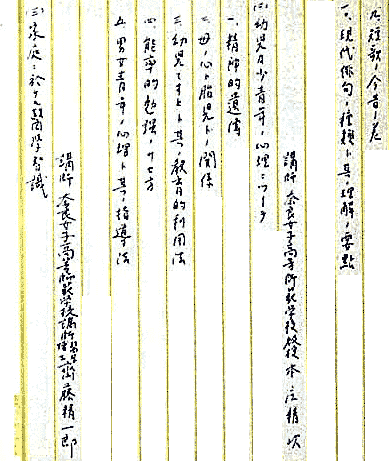 九、短歌ノ今昔ノ差
一〇、現代俳句ノ種類ト其ノ理解ノ要點
講師 奈良女子高等師範學校教授 木 精次
(二)幼兒及少青年ノ心理ニツイテ
一、精神的遺傳
二、母ノ心ト胎兒トノ關係
三、幼兒マキトト其ノ教育的利用法
四、能率的勉強ノサセ方
五、男女青年ノ心理ト其ノ指導法
講師 奈良女子高等師範學校講師 醫學博士 齋藤精一郎
(三)家庭ニ於ケル醫學智識